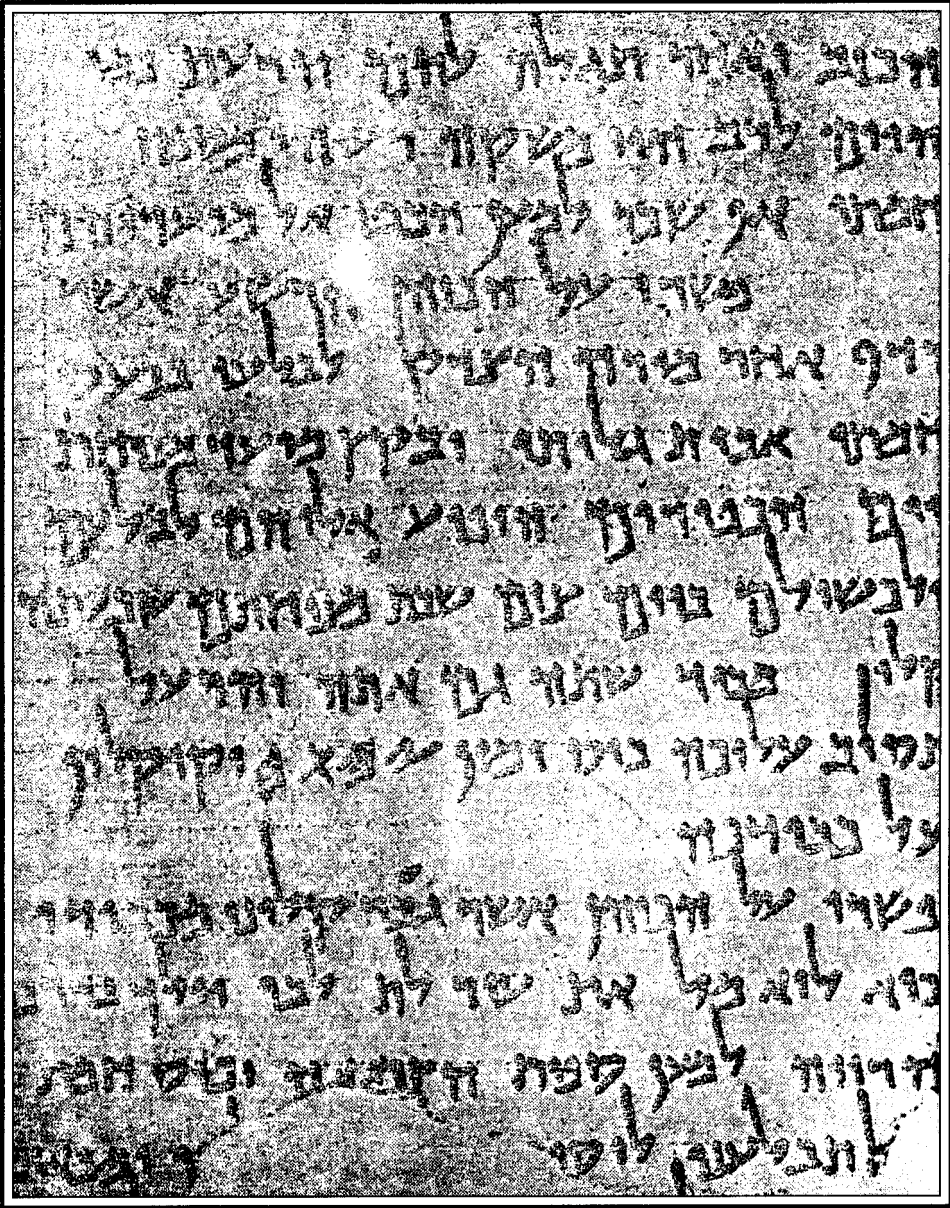 הכזב ואחר תגלה להם הדעת כמי
היים לרב הוי משקה רעיהו מספח
חמתו אף שכר למען הבט אל מועדיהם
פשרו על הכוהן הרשע אשר
רדף אחר מורה הצדק לבלעו בכעס
חמתו אבית גלותו ובקץ מועד מנוחת
יום הכפורים הופיע אליהם לבלעם
ולכשילם ביום צום שבת מנוחתם שבעתה
קלון מכבוד שתה גם אתה והרעל
תסוב עליכה כוס ימין 𐤉𐤄𐤅𐤄 וקיקלון
על כבודכה
פשרו על הכוהן אשר גבר קלונו מכבודו
כיא לוא מל את עור לבו וילך בדרכי
הרוויה למען ספות הצמאה וכוס חמת
תבלענו לוסיף